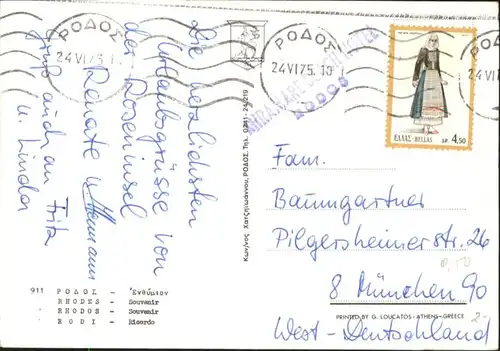 Die herzlichsten
Urlaubsgrüsse von
der Roseninsel
Renate u. Hermann
Gruß auch an Fritz
u. Linda
911 ΡΟΔΟΣ - Ἐνθύμιον
RHODES - Souvenir
RHODOS - Souvenir
RODI - Ricordo
Κων/νος Χατζηϊωάννου, ΡΟΔΟΣ, Τηλ. 0241-24/219
ΡΟΔΟΣ
24 VI 75. 1
ΡΟΔΟΣ
24 VI 75. 18
ΡΟΔΟΣ
24
RODOS
ΕΛΛΑΣ-HELLAS ΔΡ. 4,50
Fam.
Baumgartner
Pilgersheimerstr. 26
8 München 90
West-Deutschland
PRINTED BY G. LOUCATOS - ATHENS - GREECE